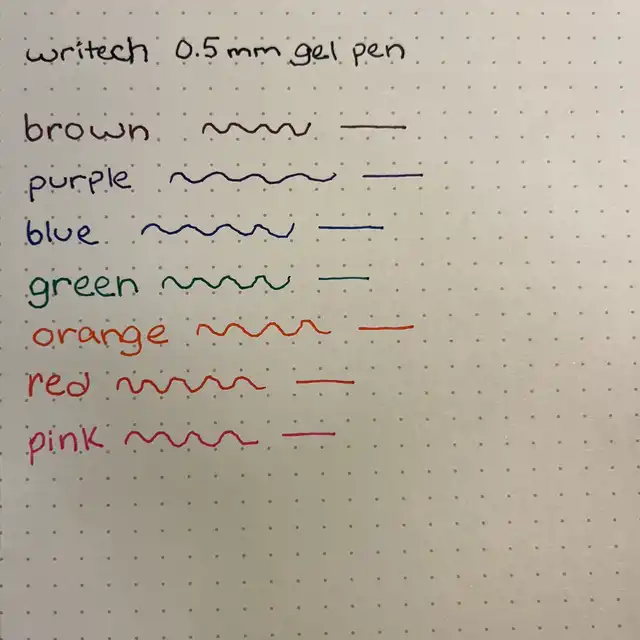 writech 0.5 mm gel pen
brown
purple
blue
green
orange
red
pink